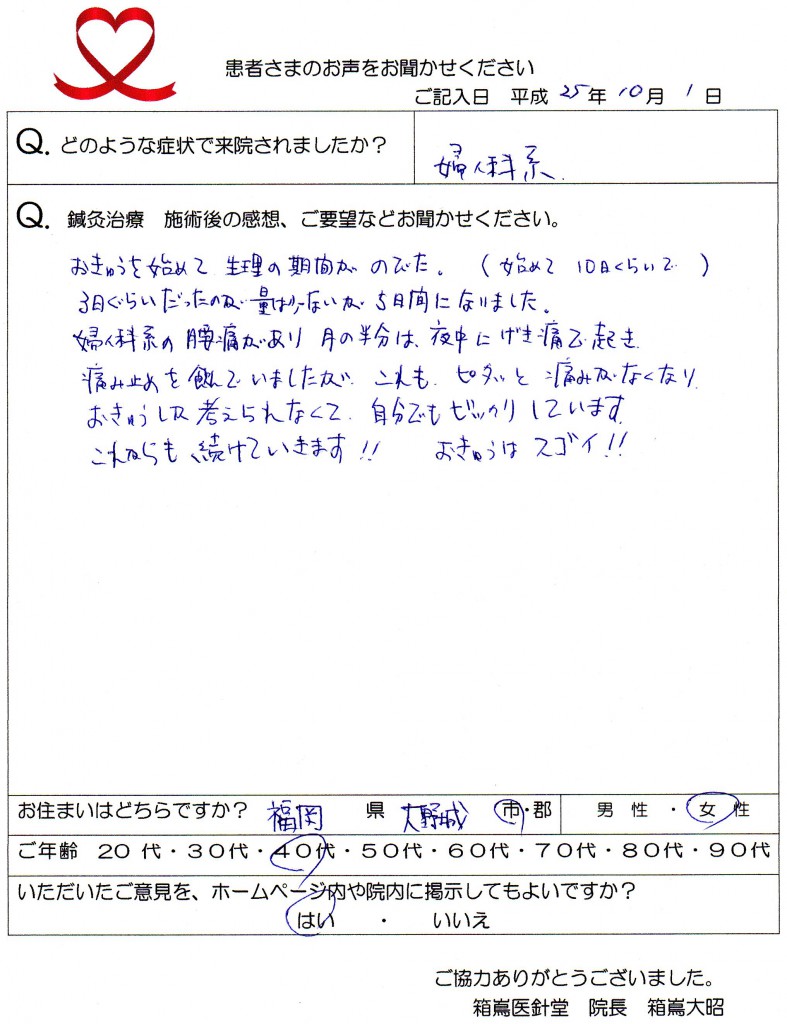 患者さまのお声をお聞かせください
ご記入日 平成 25年 10月 1日
Q. どのような症状で来院されましたか？
婦人科系
Q. 鍼灸治療 施術後の感想、ご要望などお聞かせください。
おきゅうを始めて 生理の期間が のびた。（始めて 10日くらいで ）
3日ぐらいだったのが 量は少ないが 5日間になりました。
婦人科系の 腰痛があり 月の半分は、夜中に げき痛で 起き
痛み止めを 飲んでいましたが これも ピタッと 痛みがなくなり
おきゅうしか 考えられなくて 自分でもビックリしています
これからも 続けていきます!! おきゅうは スゴイ!!
お住まいはどちらですか？ 福岡 県 大野城 市・郡 男性・女性
ご年齢 20代・30代・40代・50代・60代・70代・80代・90代
いただいたご意見を、ホームページ内や院内に掲示してもよいですか？
はい ・ いいえ
ご協力ありがとうございました。
箱嶌医針堂 院長 箱嶌大昭